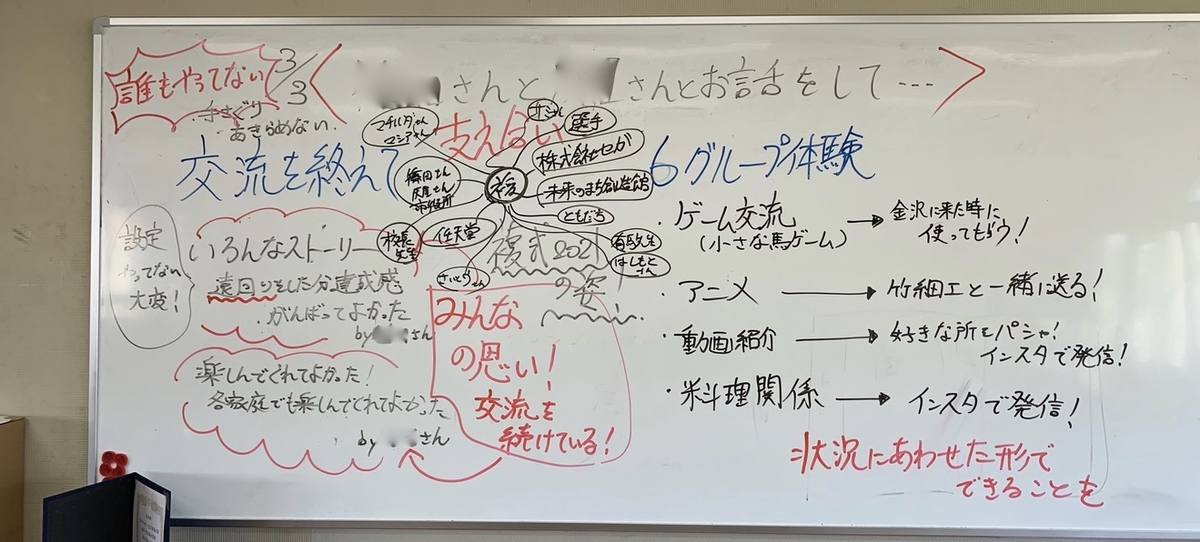 誰もやってない
手さぐり
あきらめない
3/3
さんと さんとお話をして…
交流を終えて
支えあい
設定
やってない
大変!
いろんなストーリー
遠回りをした分達成感
がんばってよかった
by さん
楽しんでくれてよかった!
各家庭でも楽しんでくれてよかった
by さん
マチルダさん
マシアさん
市役所
校長
先生
任天堂
選手
株式会社セガ
未来のまち創造館
ともだち
はしもと
さん
複式2021
の姿!
みんな
の思い!
交流を
続けている!
6グループ体験
・ゲーム交流
(小さな馬ゲーム)
金沢に来た時に
使ってもらう!
・アニメ
竹細工と一緒に送る!
・動画紹介
好きな所をパシャ!
インスタで発信!
・料理関係
インスタで発信!
状況にあわせた形で
できることを